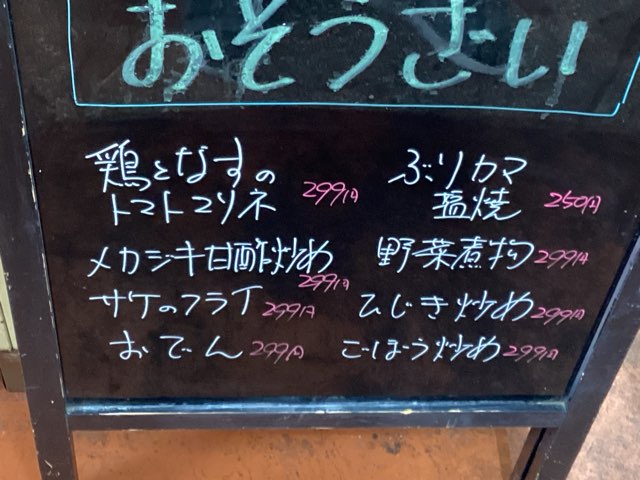 おそうざい
鶏となすの
トマトマリネ 299円
メカジキ甘酢炒め
299円
サケのフライ 299円
おでん 299円
ぶりカマ
塩焼 250円
野菜煮物 299円
ひじき炒め 299円
ごぼう炒め 299円